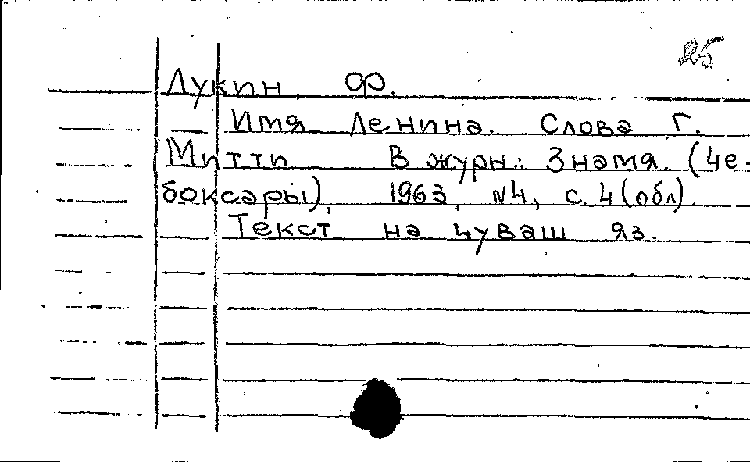 Лукин Ф.
Имя Ленина. Слова Г.
Митти В журн.: Знамя. (Че-
боксары), 1963, №4, с. 4 (обл).
Текст на чуваш яз.